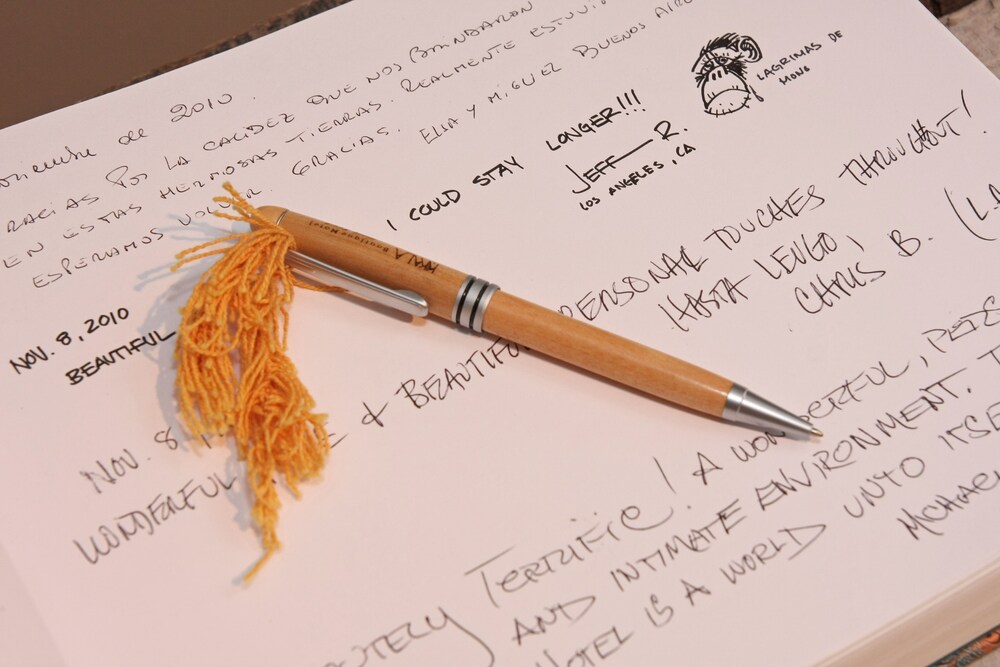 de 2010.
GRACIAS POR LA CALIDEZ QUE NOS BRINDARON
EN ESTAS HERMOSAS TIERRAS. REALMENTE ESTUVI
ESPERAMOS VOLVER. GRACIAS. ELIA Y MIGUEL BUENOS AIRE
LAGRIMAS DE
MONO
NOV. 8, 2010
BEAUTIFUL
I COULD STAY LONGER!!!
JEFF R.
LOS ANGELES, CA
NOV. 8
WONDERFUL & BEAUTIFU PERSONAL TOUCHES THROUGHOUT!
HASTA LUEGO,
CHRIS B. (LA
Boutique Hotel
UTELY TERRIFIC! A WONDERFUL, PERS
AND INTIMATE ENVIRONMENT. T
HOTEL IS A WORLD UNTO ITSE
MICHAEL